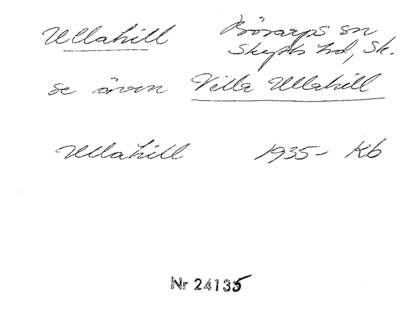 Ullahill Börarps sn
Skytts hd, Sk.
se även Villa Ullahill
Ullahill 1935- Kb
Nr 24135